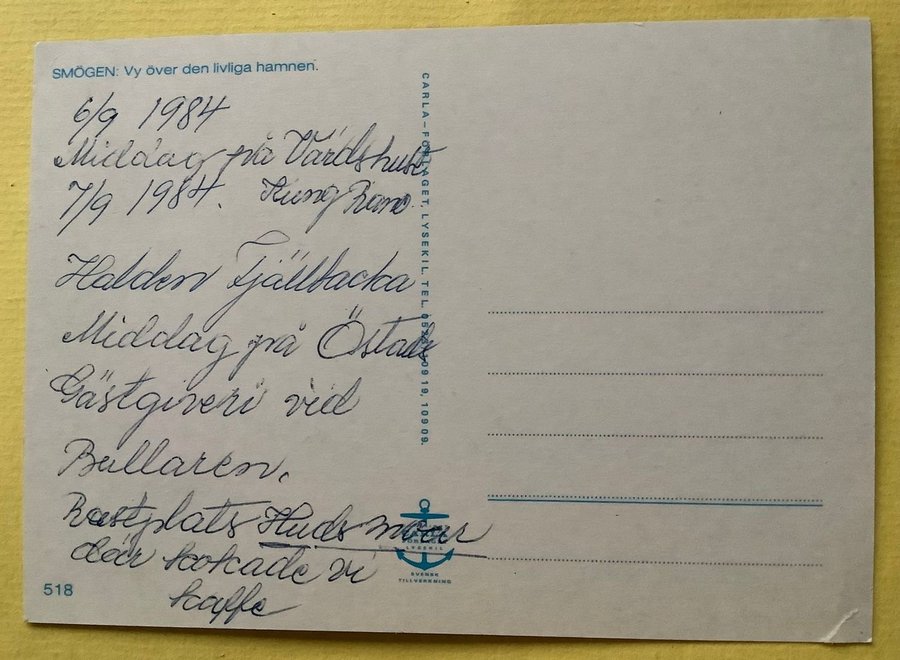 SMÖGEN: Vy över den livliga hamnen.
6/9 1984
Middag på Värdshuset
7/9 1984. Kung Rane
Halden Fjällbacka
Middag på Östads
Gästgiveri vid
Bullaren.
Rastplats Huds moar
där kokade vi
kaffe
518
CARLA-FÖRLAGET, LYSEKIL. TEL. 109 19, 109 09.
LYSEKIL
SVENSK
TILLVERKNING